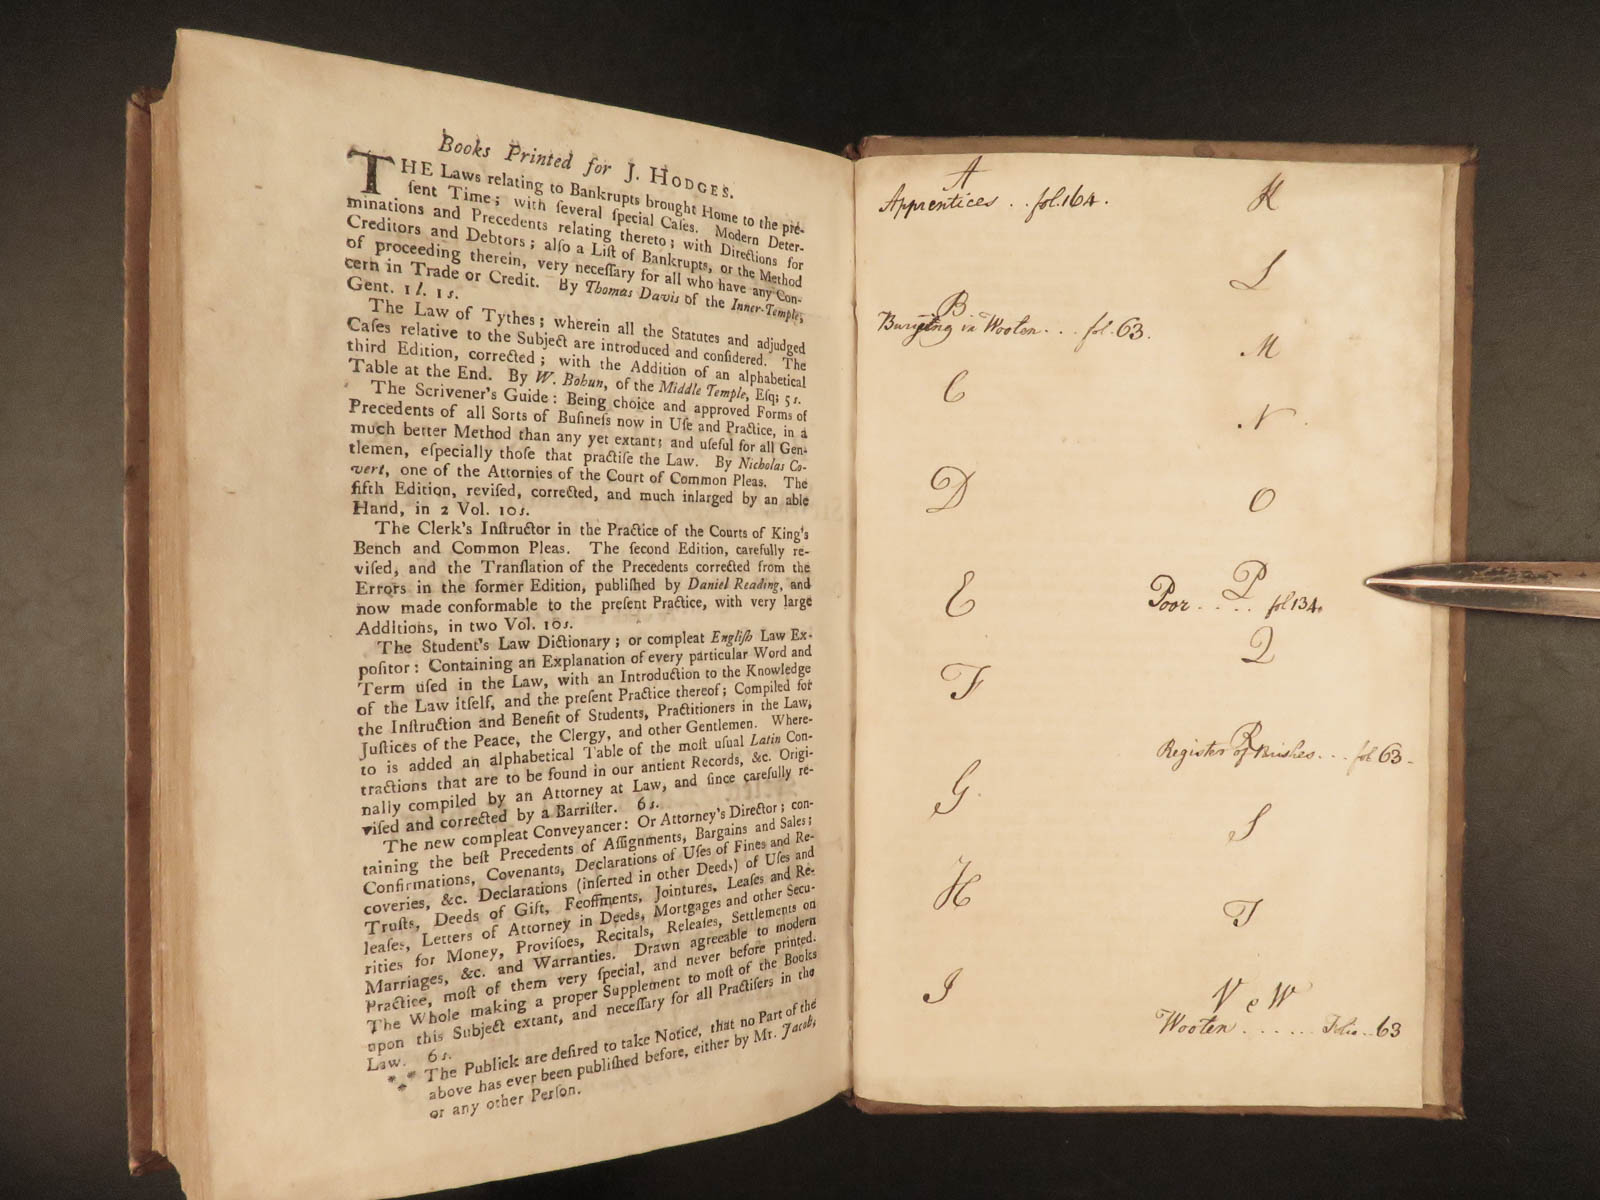 Books Printed for J. HODGES.
THE Laws relating to Bankrupts brought Home to the pre-
ſent Time; with ſeveral ſpecial Caſes. Modern Deter-
minations and Precedents relating thereto; with Directions for
Creditors and Debtors; alſo a Liſt of Bankrupts, or the Method
of proceeding therein, very neceſſary for all who have any Con-
cern in Trade or Credit. By Thomas Davis of the Inner-Temple,
Gent. 1 l. 1 s.
The Law of Tythes; wherein all the Statutes and adjudged
Caſes relative to the Subject are introduced and conſidered. The
third Edition, corrected; with the Addition of an alphabetical
Table at the End. By W. Bohun, of the Middle Temple, Eſq; 5 s.
The Scrivener's Guide: Being choice and approved Forms of
Precedents of all Sorts of Buſineſs now in Uſe and Practice, in a
much better Method than any yet extant; and uſeful for all Gen-
tlemen, eſpecially thoſe that practiſe the Law. By Nicholas Co-
vert, one of the Attornies of the Court of Common Pleas. The
fifth Edition, reviſed, corrected, and much inlarged by an able
Hand, in 2 Vol. 10s.
The Clerk's Inſtructor in the Practice of the Courts of King's
Bench and Common Pleas. The ſecond Edition, carefully re-
viſed, and the Tranſlation of the Precedents corrected from the
Errors in the former Edition, publiſhed by Daniel Reading, and
now made conformable to the preſent Practice, with very large
Additions, in two Vol. 10s.
The Student's Law Dictionary; or compleat Engliſh Law Ex-
poſitor: Containing an Explanation of every particular Word and
Term uſed in the Law, with an Introduction to the Knowledge
of the Law itſelf, and the preſent Practice thereof; Compiled for
the Inſtruction and Benefit of Students, Practitioners in the Law,
Juſtices of the Peace, the Clergy, and other Gentlemen. Where-
to is added an alphabetical Table of the moſt uſual Latin Con-
tractions that are to be found in our antient Records, &c. Origi-
nally compiled by an Attorney at Law, and ſince carefully re-
viſed and corrected by a Barriſter. 6 s.
The new compleat Conveyancer: Or Attorney's Director; con-
taining the beſt Precedents of Aſſignments, Bargains and Sales;
Confirmations, Covenants, Declarations of Uſes of Fines and Re-
coveries, &c. Declarations (inſerted in other Deeds) of Uſes and
Truſts, Deeds of Gift, Feoffments, Jointures, Leaſes and Re-
leaſes, Letters of Attorney in Deeds, Mortgages and other Secu-
rities for Money, Proviſoes, Recitals, Releaſes, Settlements on
Marriages, &c. and Warranties. Drawn agreeable to modern
Practice, moſt of them very ſpecial, and never before printed.
The Whole making a proper Supplement to moſt of the Books
upon this Subject extant, and neceſſary for all Practiſers in the
Law. 6 s.
*** The Publick are deſired to take Notice, that no Part of the
above has ever been publiſhed before, either by Mr. Jacob,
or any other Perſon.
A
Apprentices . . fol. 164.
B
in Woolen . . . fol. 63.
C
D
E
F
G
H
I
K
L
M
N
O
P
Poor . . . . fol 134.
Q
R
Register of . . . fol 63.
S
T
V e W
Woolen . . . . . . Folio . . 63